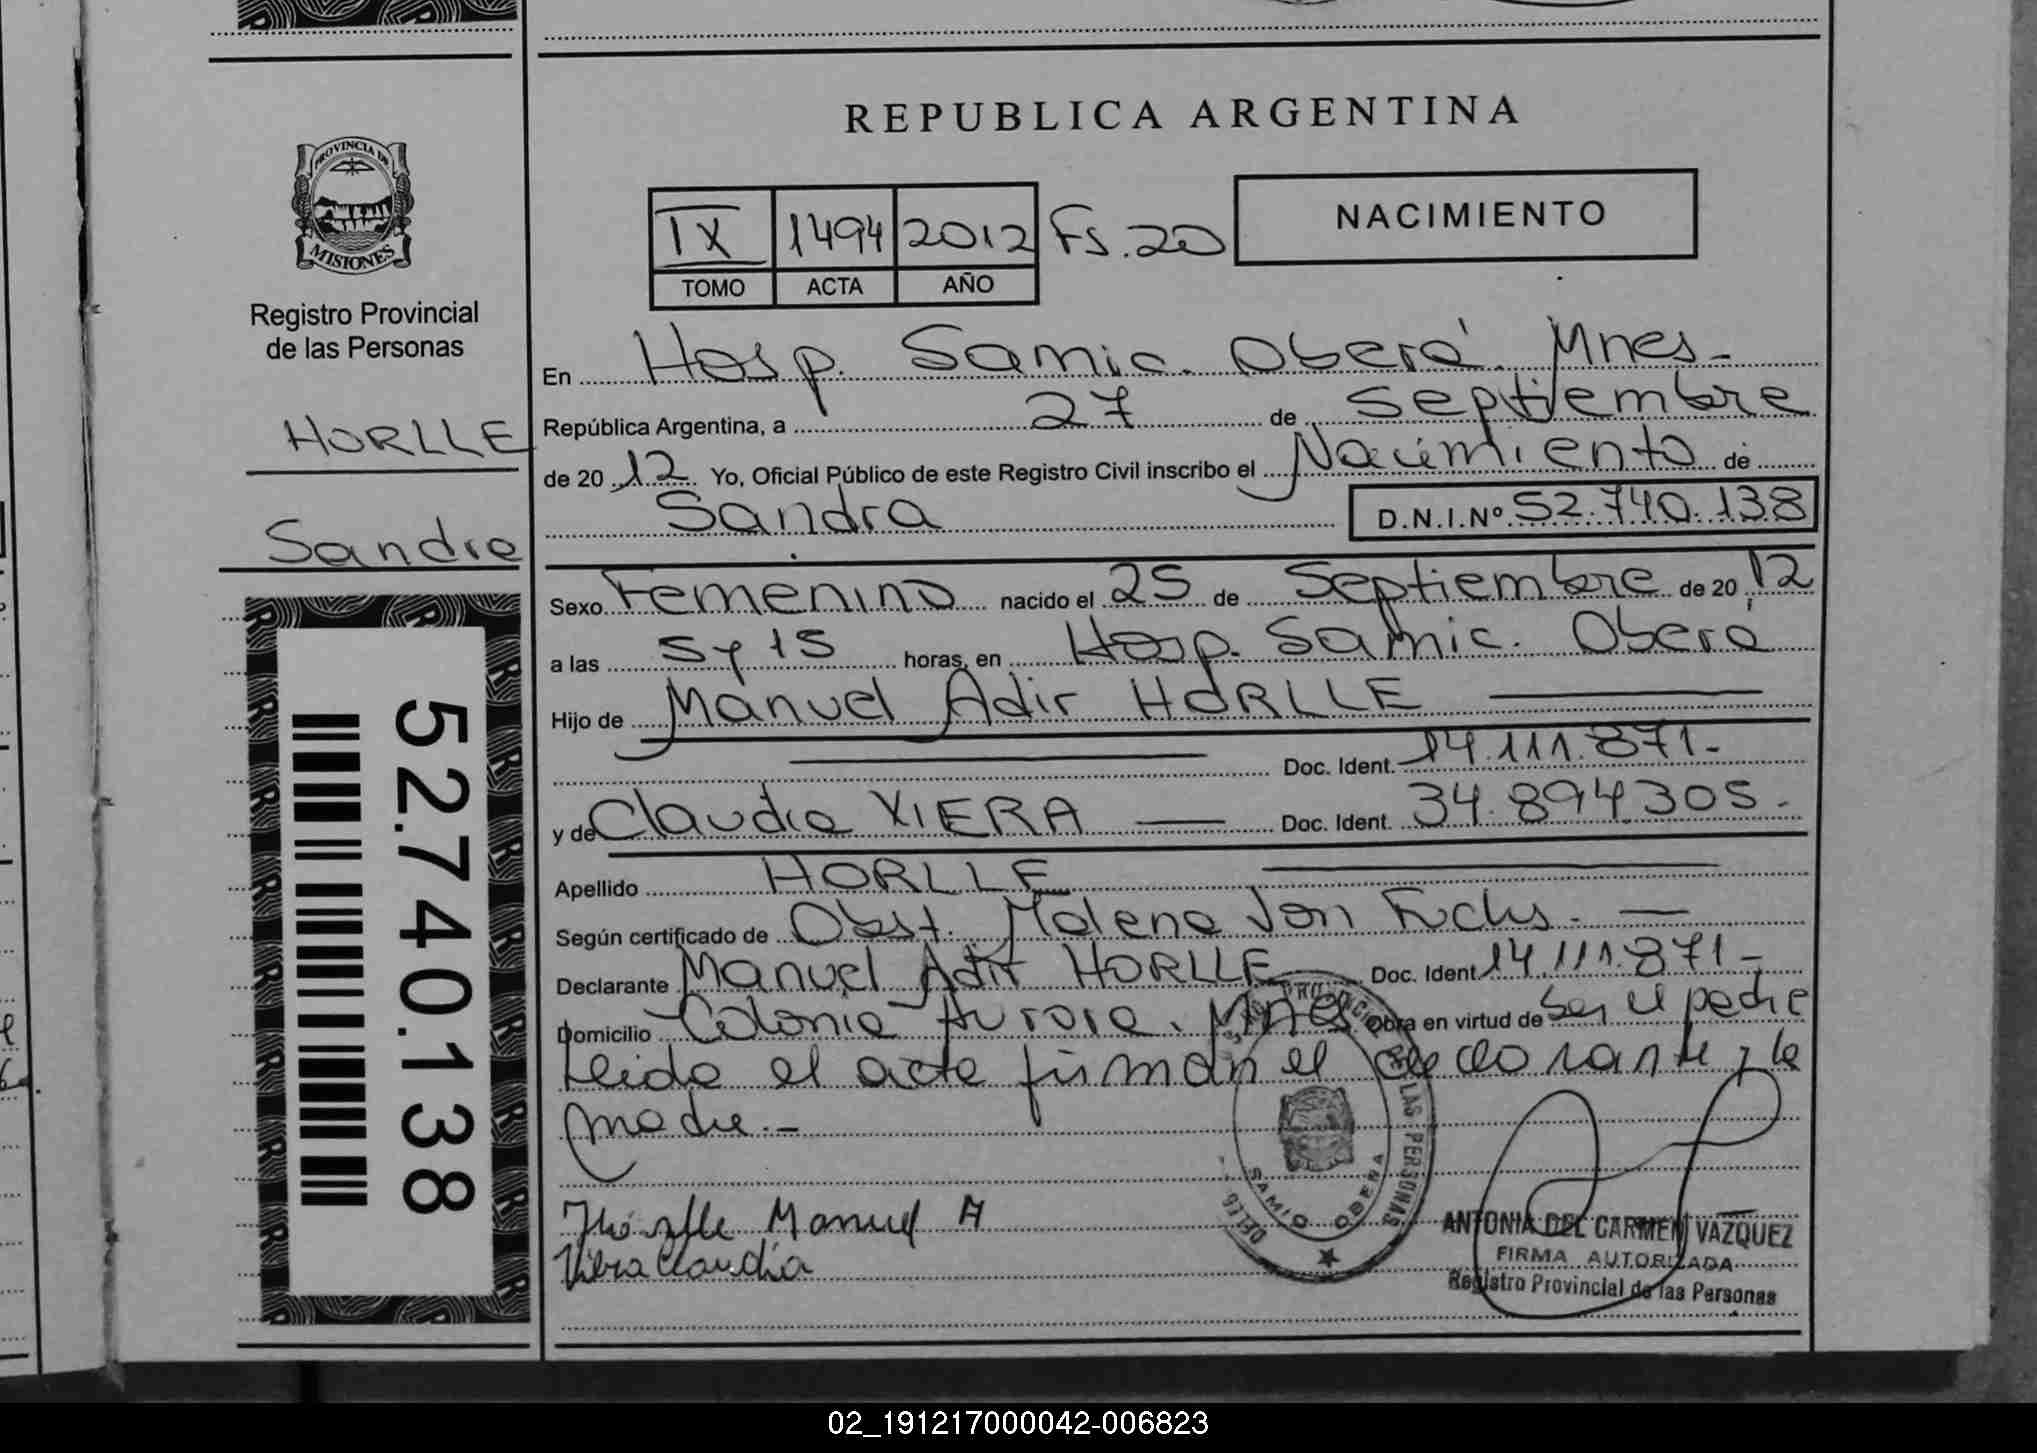 REPUBLICA ARGENTINA
PROVINCIA DE
MISIONES
Registro Provincial
de las Personas
HORLLE
Sandra
52.740.138
IX 1494 2012 Fs. 20
TOMO ACTA AÑO
NACIMIENTO
En Hosp. Samic. Oberá. Mnes-
República Argentina, a 27 de Septiembre
de 20 12 Yo, Oficial Público de este Registro Civil inscribo el Nacimiento de
Sandra D.N.I.Nº 52.740.138
Sexo Femenino nacido el 25 de Septiembre de 20 12
a las 5 y 15 horas, en Hosp. Samic. Oberá
Hijo de Manuel Adir HORLLE
Doc. Ident. 14.111.871-
y de Claudia VIERA Doc. Ident. 34.894.305.-
Apellido HORLLE
Según certificado de Obst. Malena Von Fuchs.-
Declarante Manuel Adir HORLLE Doc. Ident 14.111.871-
Domicilio Colonia Aurora. Mnes. Obra en virtud de ser el padre
Leida el acta firman el declarante y la
madre.-
Horlle Manuel A
Viera Claudia
PROVINCIAL DE LAS PERSONAS
SAMIC OBERA
DELEG.
ANTONIA DEL CARMEN VAZQUEZ
FIRMA AUTORIZADA
Registro Provincial de las Personas
02_191217000042-006823